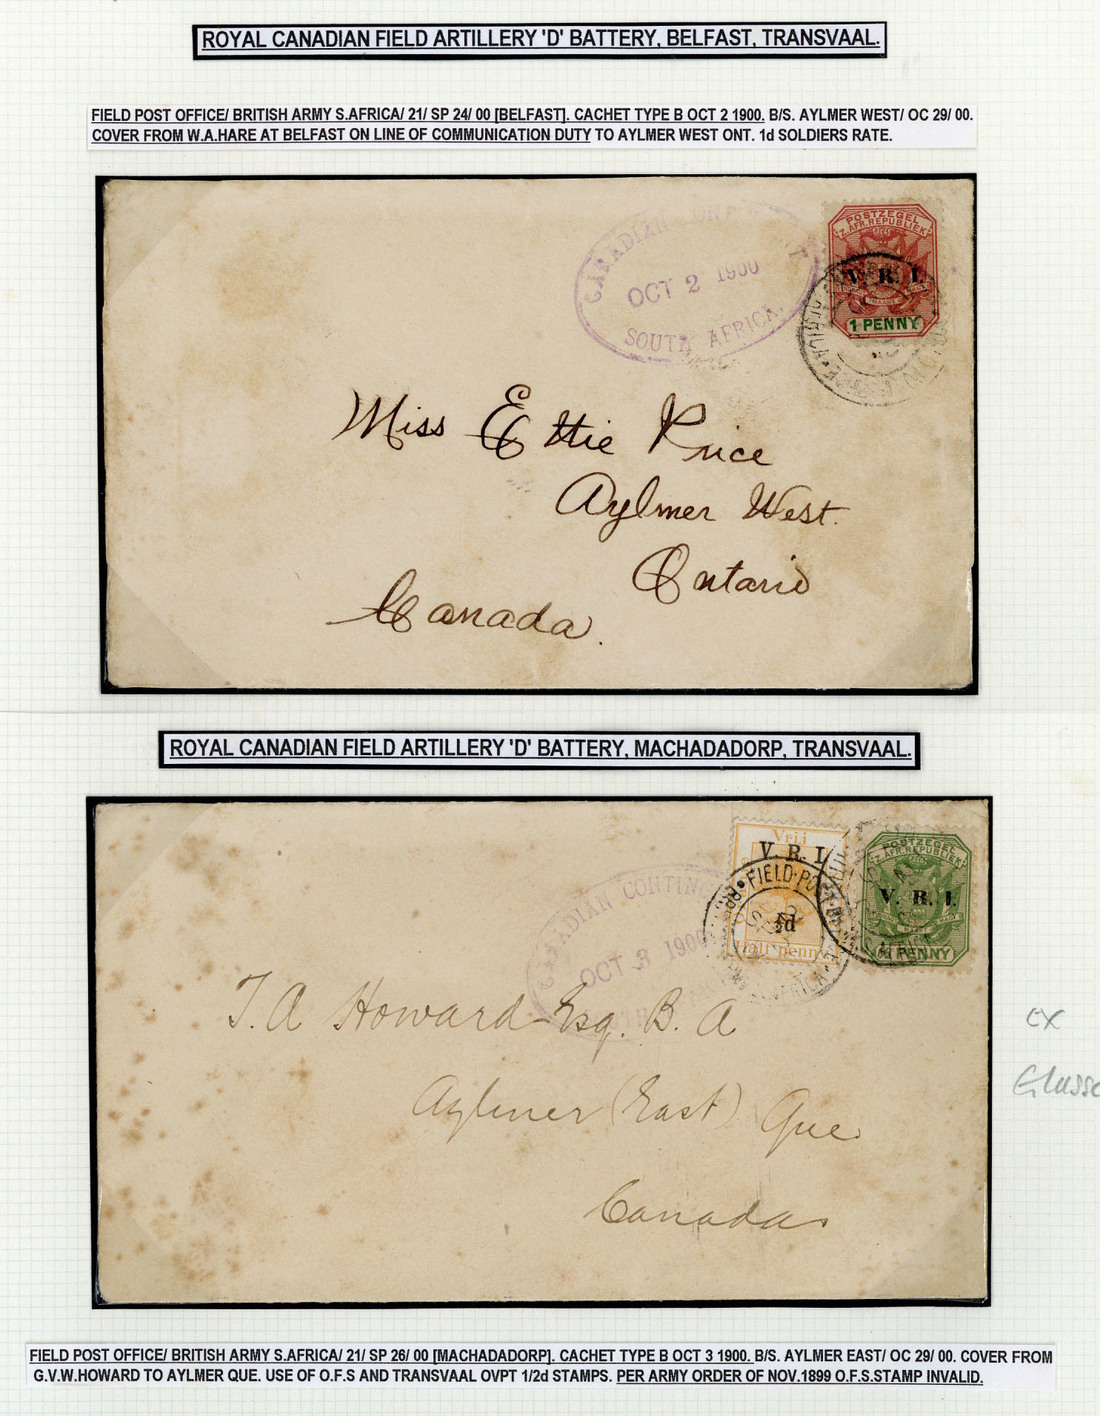 ROYAL CANADIAN FIELD ARTILLERY 'D' BATTERY, BELFAST, TRANSVAAL.
FIELD POST OFFICE/ BRITISH ARMY S.AFRICA/ 21/ SP 24/ 00 [BELFAST]. CACHET TYPE B OCT 2 1900. B/S. AYLMER WEST/ OC 29/ 00.
COVER FROM W.A.HARE AT BELFAST ON LINE OF COMMUNICATION DUTY TO AYLMER WEST ONT. 1d SOLDIERS RATE.
CANADIAN
OCT 2 1900
SOUTH AFRICA.
POSTZEGEL
Z.AFR.REPUBLIEK
V. R. I.
1 PENNY
Miss Ettie Price
Aylmer West.
Ontario
Canada.
ROYAL CANADIAN FIELD ARTILLERY 'D' BATTERY, MACHADADORP, TRANSVAAL.
CANADIAN CONTIN
OCT 3 1900
Vrij
V. R. I.
½d
Half penny
FIELD·PO
POSTZEGEL
Z.AFR.REPUBLIEK
V. R. I.
PENNY
T. A Howard Esq. B. A
Aylmer (East) Que
Canada
ex
FIELD POST OFFICE/ BRITISH ARMY S.AFRICA/ 21/ SP 26/ 00 [MACHADADORP]. CACHET TYPE B OCT 3 1900. B/S. AYLMER EAST/ OC 29/ 00. COVER FROM
G.V.W.HOWARD TO AYLMER QUE. USE OF O.F.S AND TRANSVAAL OVPT 1/2d STAMPS. PER ARMY ORDER OF NOV.1899 O.F.S.STAMP INVALID.